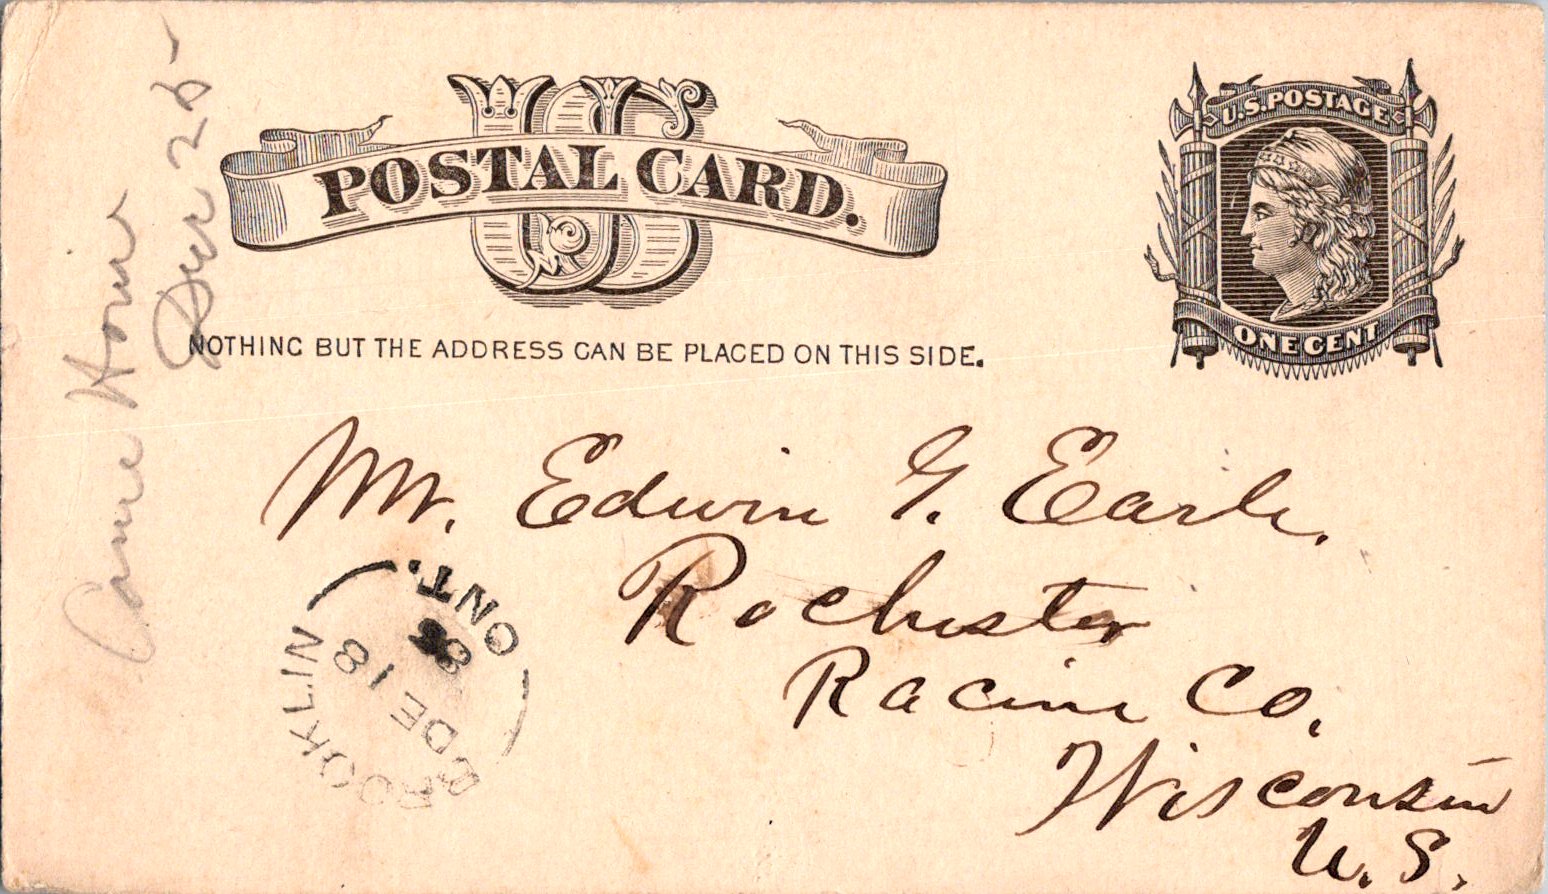 US
POSTAL CARD.
NOTHING BUT THE ADDRESS CAN BE PLACED ON THIS SIDE.
U.S. POSTAGE
ONE CENT
Came Home
Dec 25
Mr. Edwin G. Earle.
Rochester
Racine Co.
Wisconsin
U.S.
BROOKLIN ONT.
DE 18